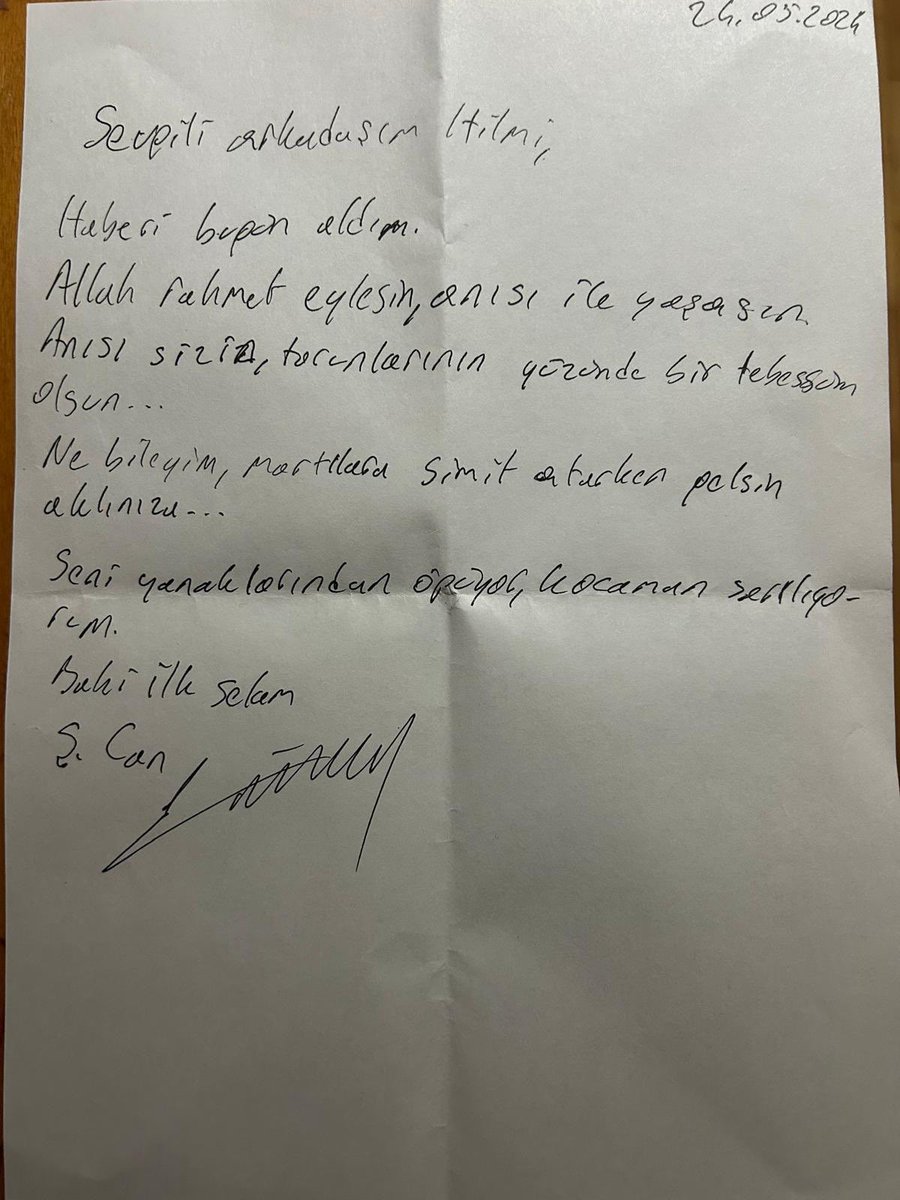 24.05.2024
Sevgili arkadaşım Hilmi,
Haberi bugün aldım.
Allah rahmet eylesin, anısı ile yaşasın.
Anısı sizin, torunlarının yüzünde bir tebessüm
olsun...
Ne bileyim, martılara simit atarken gelsin
aklınıza...
Seni yanaklarından öpüyor, kocaman sarılıyo-
rum.
Baki ilk selam
Ş. Can